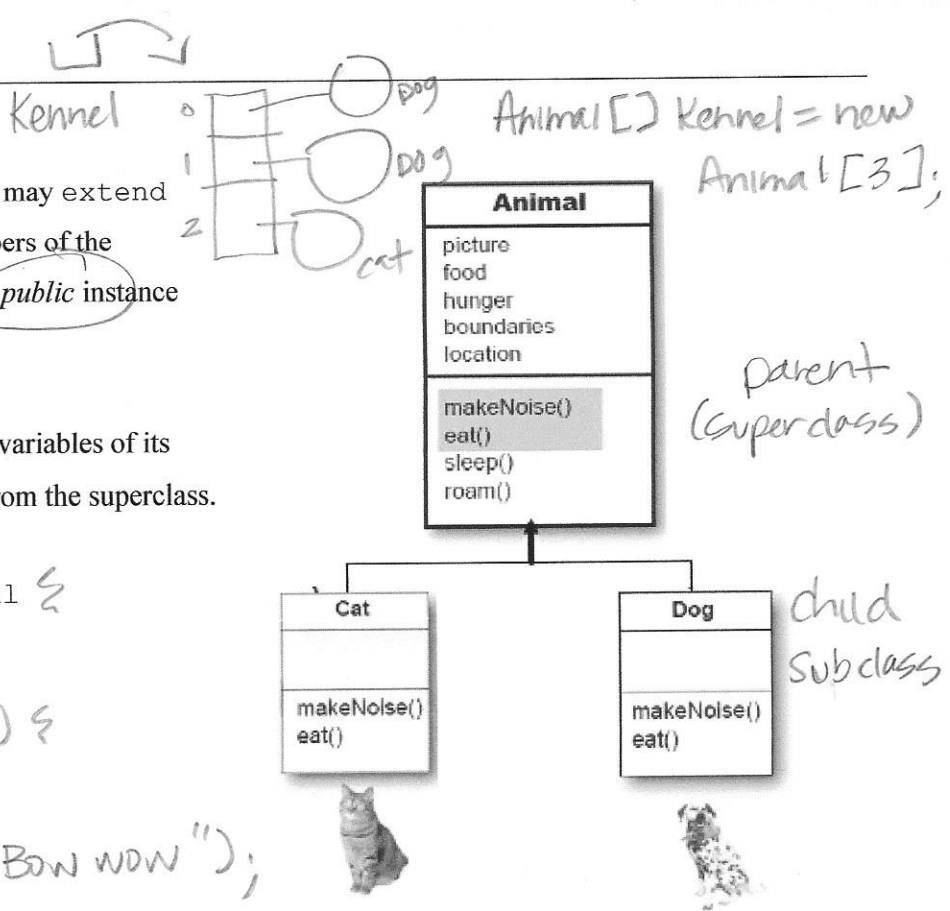 Kennel
0
Dog
1
Dog
2
cat
Animal[] Kennel = new
Animal[3];
may extend
ers of the
public instance
variables of its
rom the superclass.
l {
) {
Bow wow");
Animal
picture
food
hunger
boundaries
location
makeNoise()
eat()
sleep()
roam()
parent
(superclass)
Cat
makeNoise()
eat()
Dog
makeNoise()
eat()
child
subclass